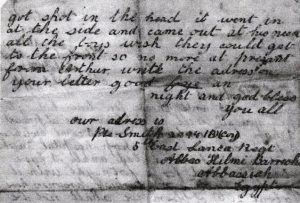 got shot in the head it went in
at the side and came out at his neck
all the boys wish they could get
to the front so no more at present
from Arthur write the adress on
your letter good bye an
night and god bless
you all
our adress is
Pte Smith
5th East Lancs Regt
Abbas Hilmi Barracks
Abbassiah
Egypt